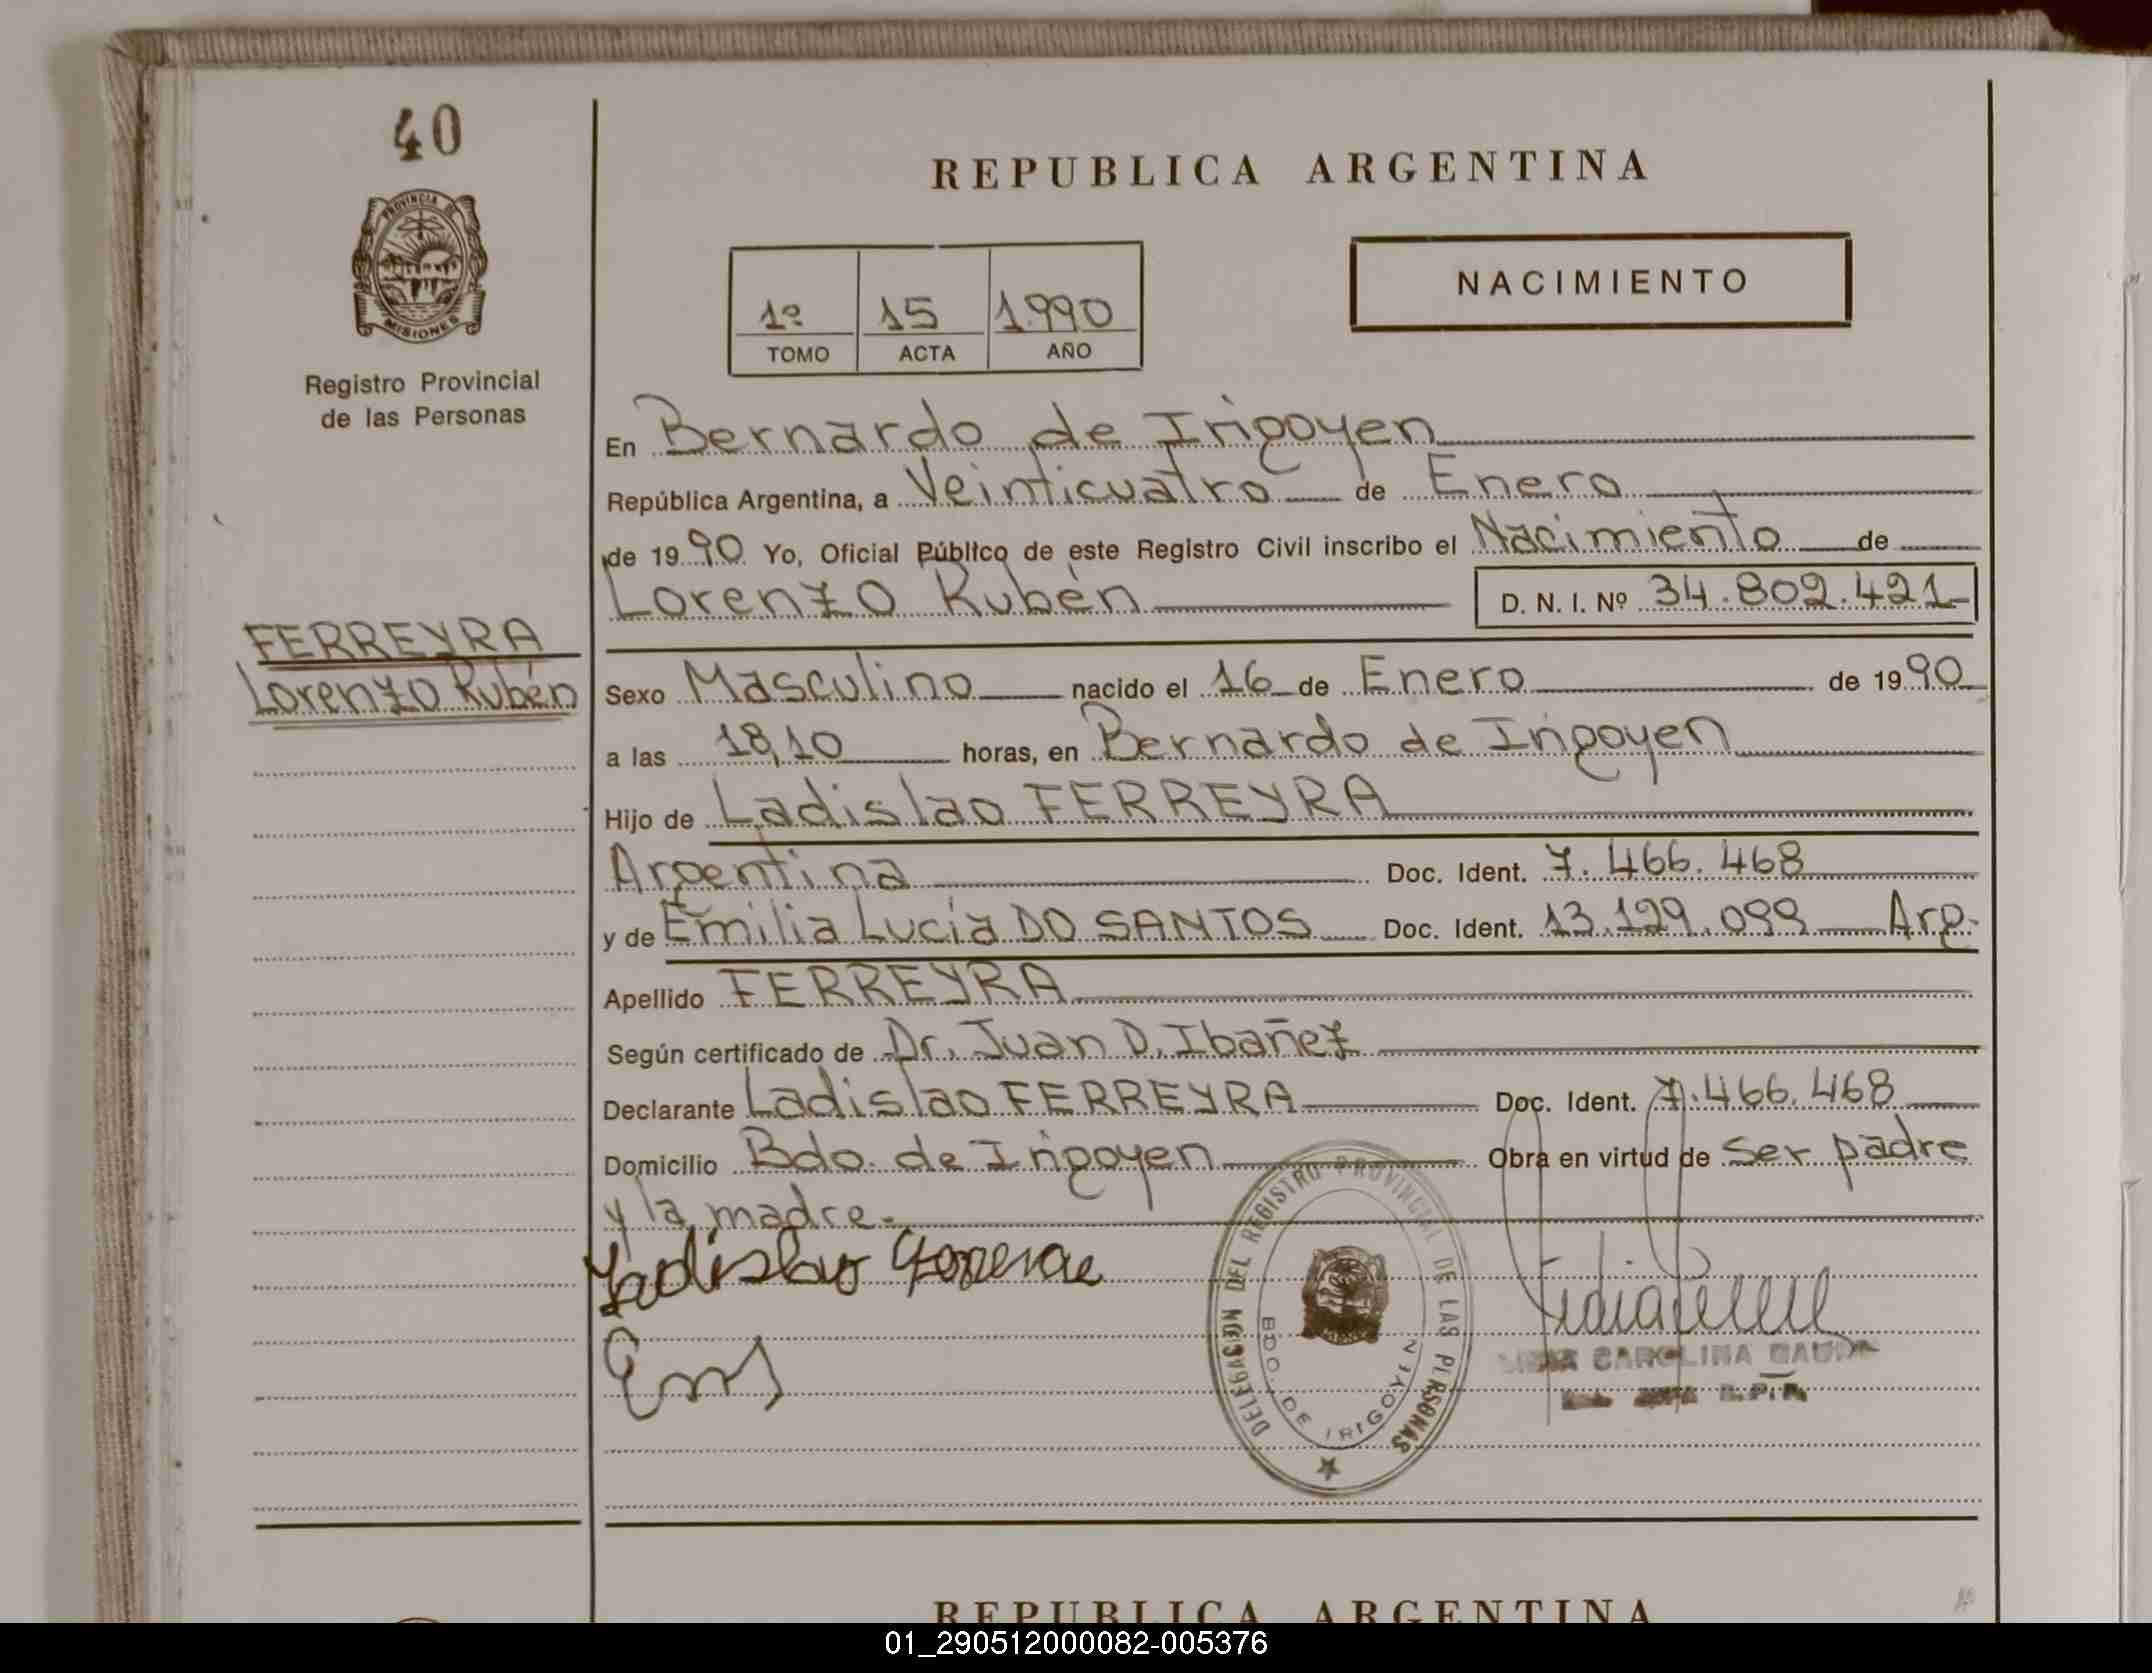 40
REPUBLICA ARGENTINA
PROVINCIA DE
MISIONES
NACIMIENTO
1º 15 1.990
TOMO ACTA AÑO
Registro Provincial
de las Personas
En Bernardo de Irigoyen
República Argentina, a Veinticuatro de Enero
de 1990 Yo, Oficial Público de este Registro Civil inscribo el Nacimiento de
Lorenzo Rubén D. N. I. Nº 34.802.421
FERREYRA
Lorenzo Rubén
Sexo Masculino nacido el 16 de Enero de 1990
a las 18,10 horas, en Bernardo de Irigoyen
Hijo de Ladislao FERREYRA
Argentina Doc. Ident. 7.466.468
y de Emilia Lucía DO SANTOS Doc. Ident. 13.129.099 Arg.
Apellido FERREYRA
Según certificado de Dr. Juan D. Ibañez
Declarante Ladislao FERREYRA Doc. Ident. 7.466.468
Domicilio Bdo. de Irigoyen Obra en virtud de ser padre
y la madre.
Ladislao
DELEGACION DEL REGISTRO PROVINCIAL DE LAS PERSONAS
BDO. DE IRIGOYEN
CAROLINA
R.P.P.
REPUBLICA ARGENTINA
01_290512000082-005376